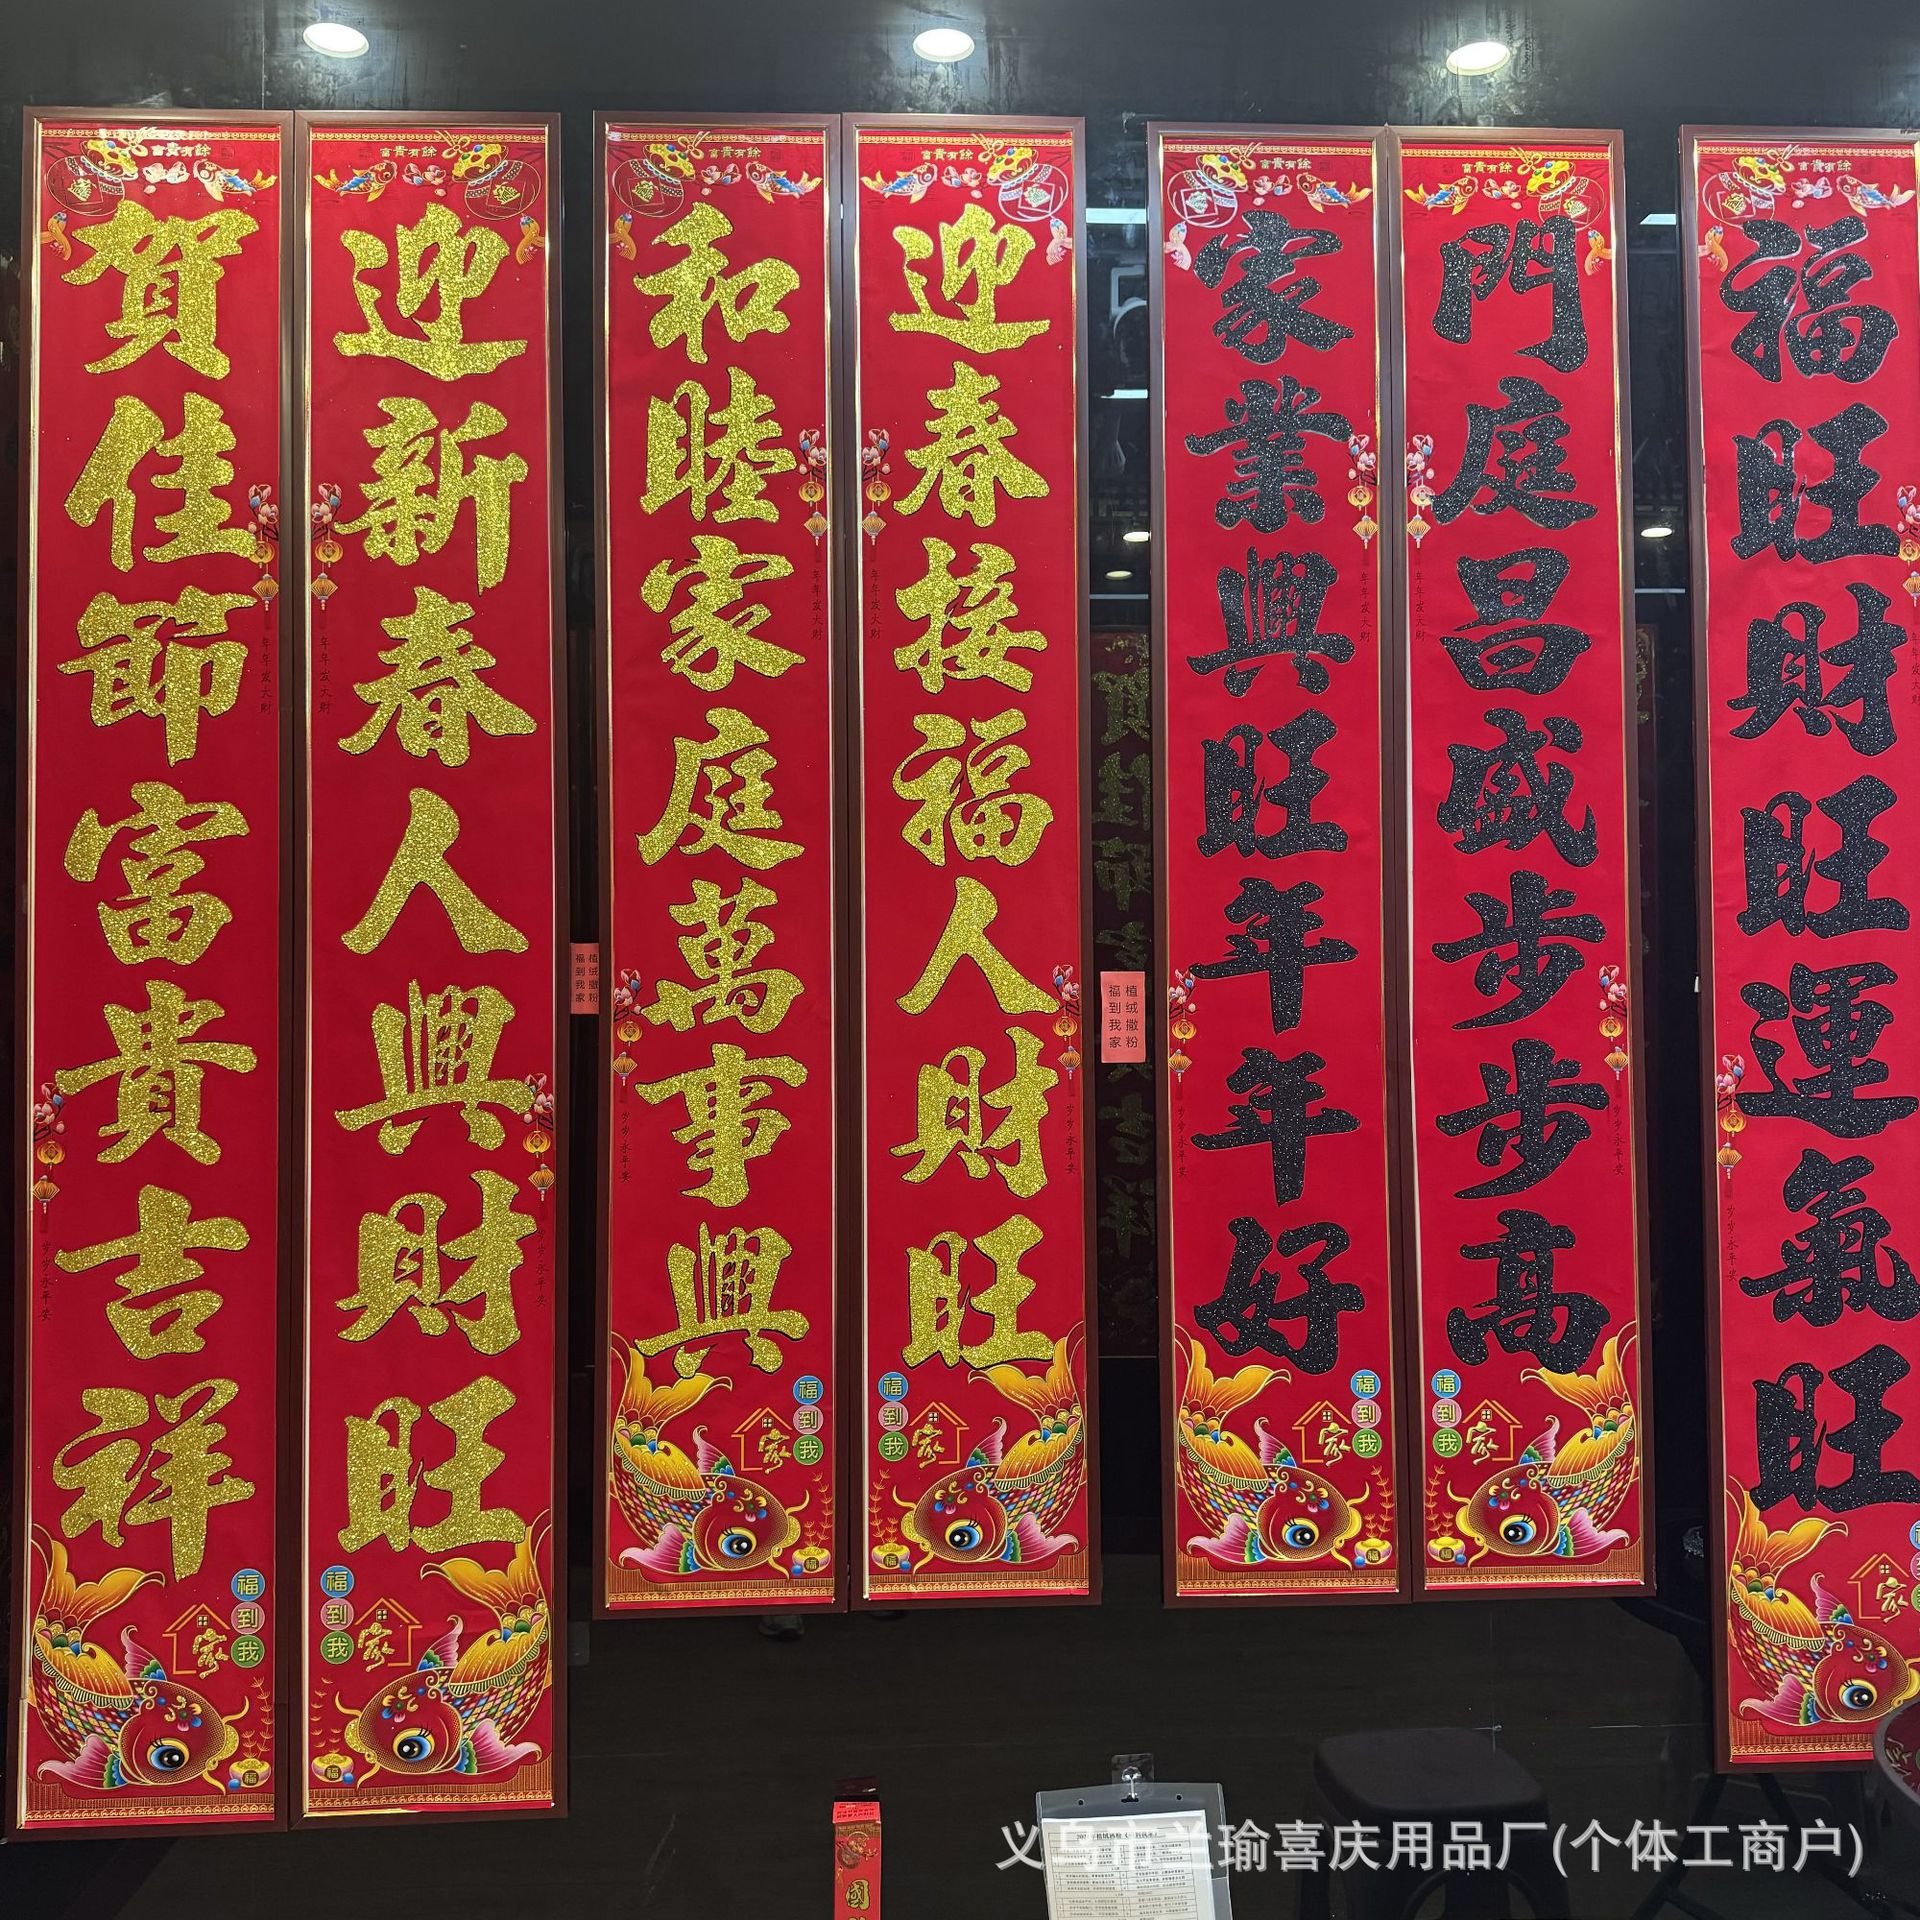 富貴有餘
賀佳節富貴吉祥
年年发大财
岁岁永平安
福到我家
富貴有餘
迎新春人興財旺
年年发大财
岁岁永平安
福到我家
植绒撒粉
福到我家
富貴有餘
和睦家庭萬事興
年年发大财
岁岁永平安
福到我家
富貴有餘
迎春接福人財旺
年年发大财
岁岁永平安
福到我家
植绒撒粉
福到我家
富貴有餘
家業興旺年年好
年年发大财
岁岁永平安
福到我家
富貴有餘
門庭昌盛步步高
年年发大财
岁岁永平安
福到我家
富貴有餘
福旺財旺運氣旺
年年发大财
岁岁永平安
家
兰瑜喜庆用品厂(个体工商户)